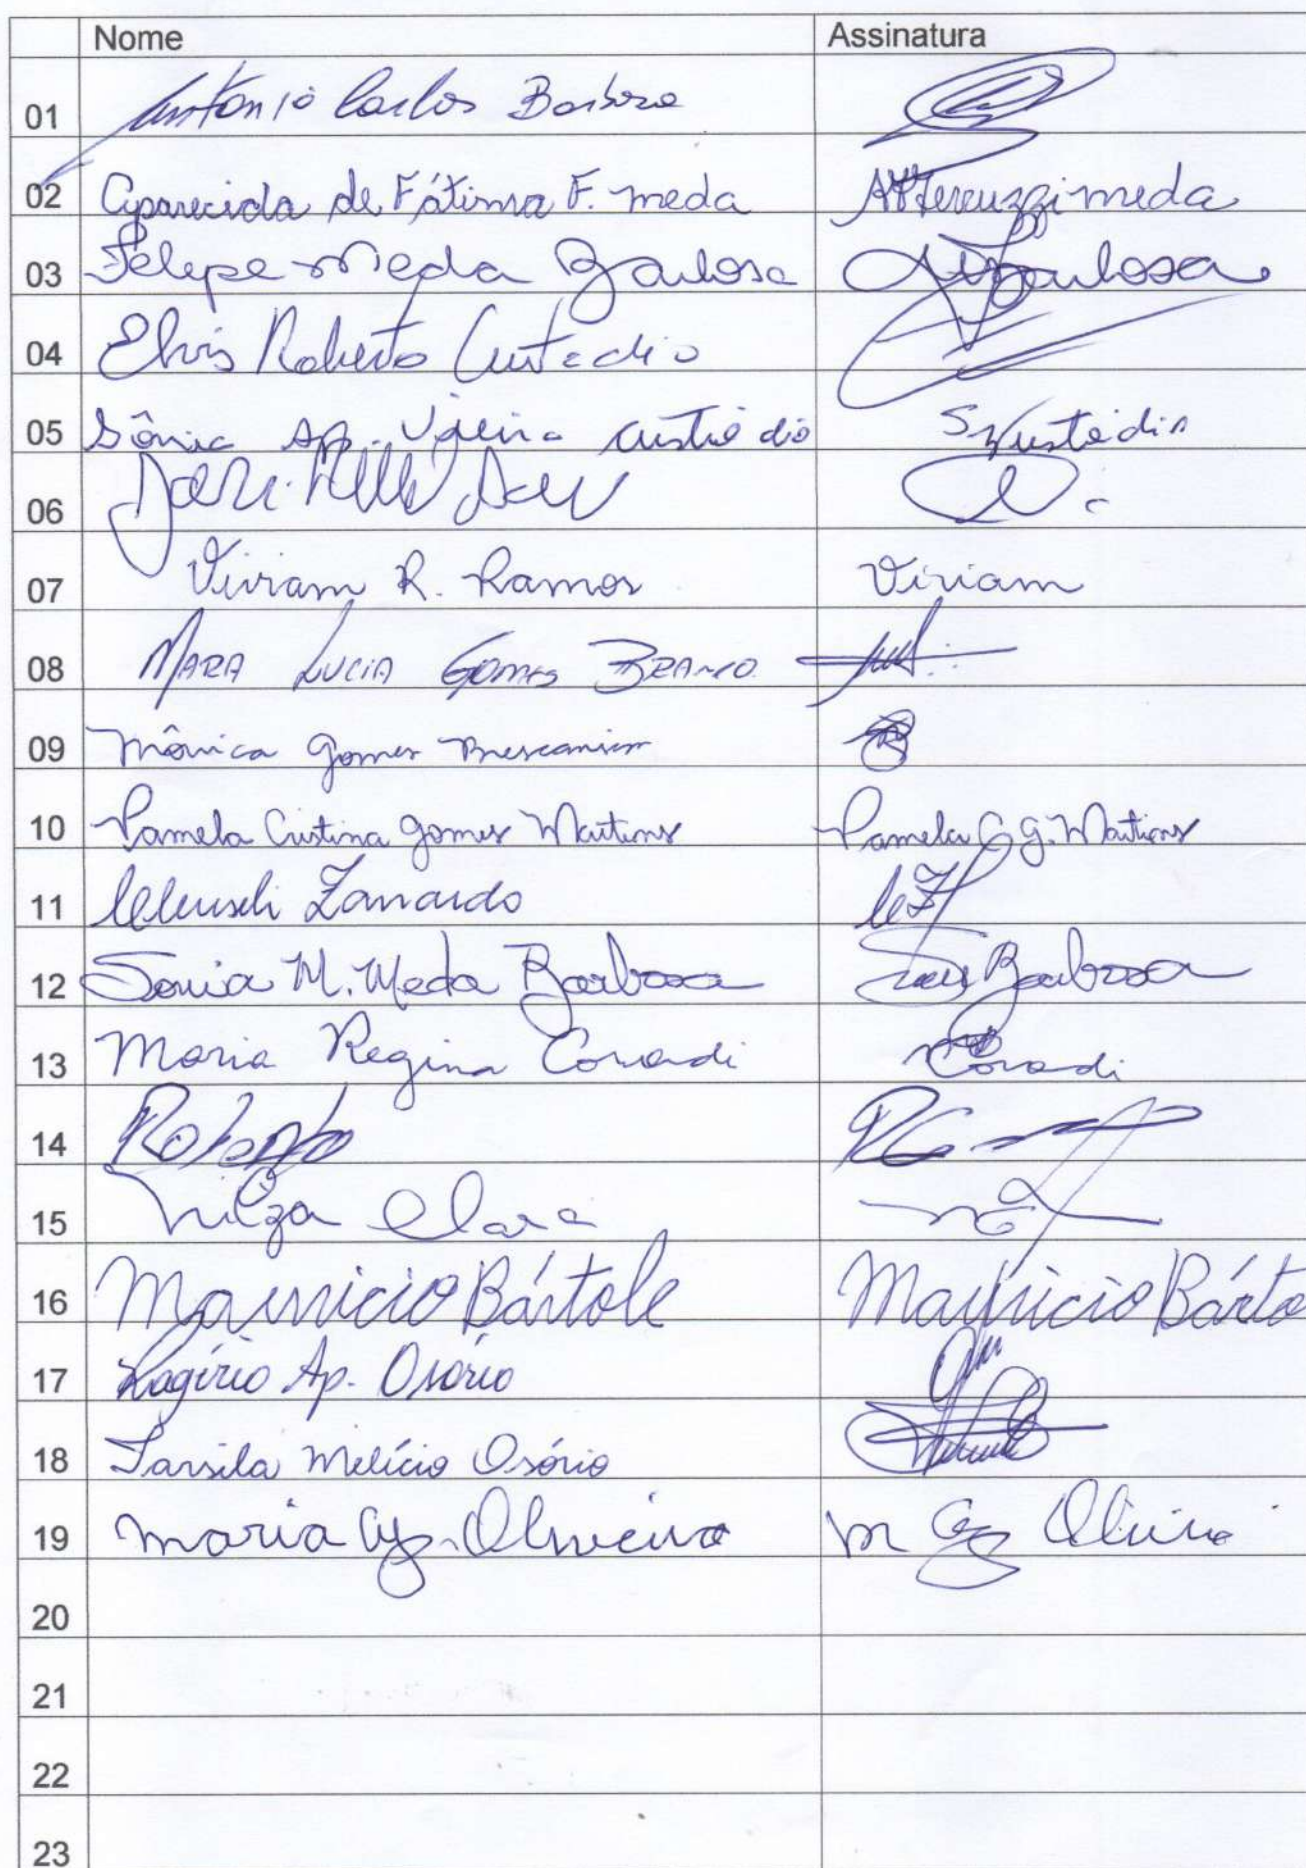 Nome Assinatura
01 Antônio Carlos Barbosa
02 Aparecida de Fátima F. meda AFFereuzzi meda
03 Felipe Meda Barbosa Barbosa
04 Elvis Roberto Custodio
05 Sônia Ap. Vieira custió dio Custódio
06
07 Viviam R. Ramos Viriam
08 MARA LUCIA GOMES BRANCO
09 Mônica Gomes
10 Pamela Cristina Gomes Martins Pamela C G. Martins
11 Zanardo
12 Sonia M. Meda Barbosa Barbosa
13 Maria Regina Coradi Coradi
14 Roberto
15 Nilza Clara
16 Mauricio Bártole Mauricio Bárto
17 Rogério Ap. Osório
18 Tarsila Melício Osório
19 maria Ap. Oliveira m Ap Oliveira
20
21
22
23